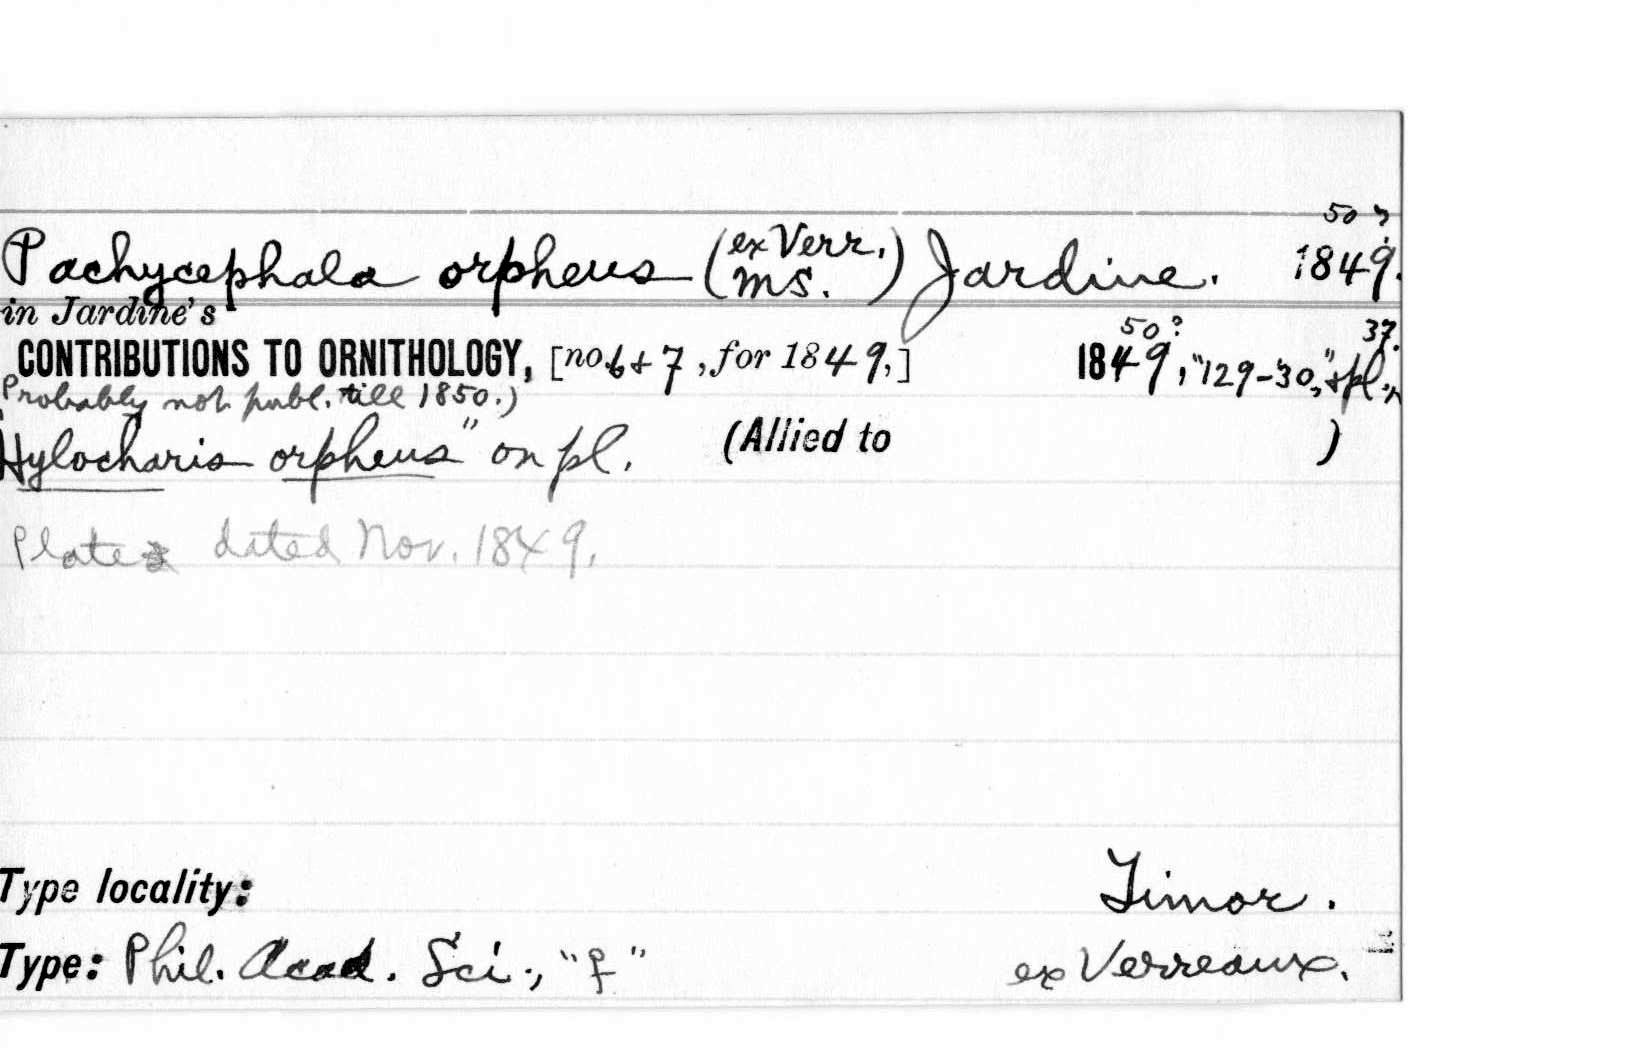 50?
Pachycephala orpheus (ex Verr. MS.) Jardine. 1849.
in Jardine's
50? 37.
CONTRIBUTIONS TO ORNITHOLOGY, [no. 6 + 7, for 1849,] 1849, "129-30," + pl.
Probably not publ. till 1850.)
"Hylocharis orpheus" on pl. (Allied to )
Plate dated Nov. 1849.
Type locality: Timor.
Type: Phil. Acad. Sci., "♀" ex Verreaux.